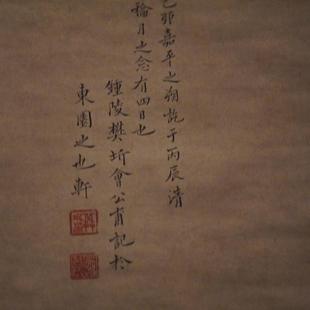 乙卯嘉平之朔訖于丙辰清
龠月之念有四日也
鍾陵樊圻會公甫記於
東園之也軒